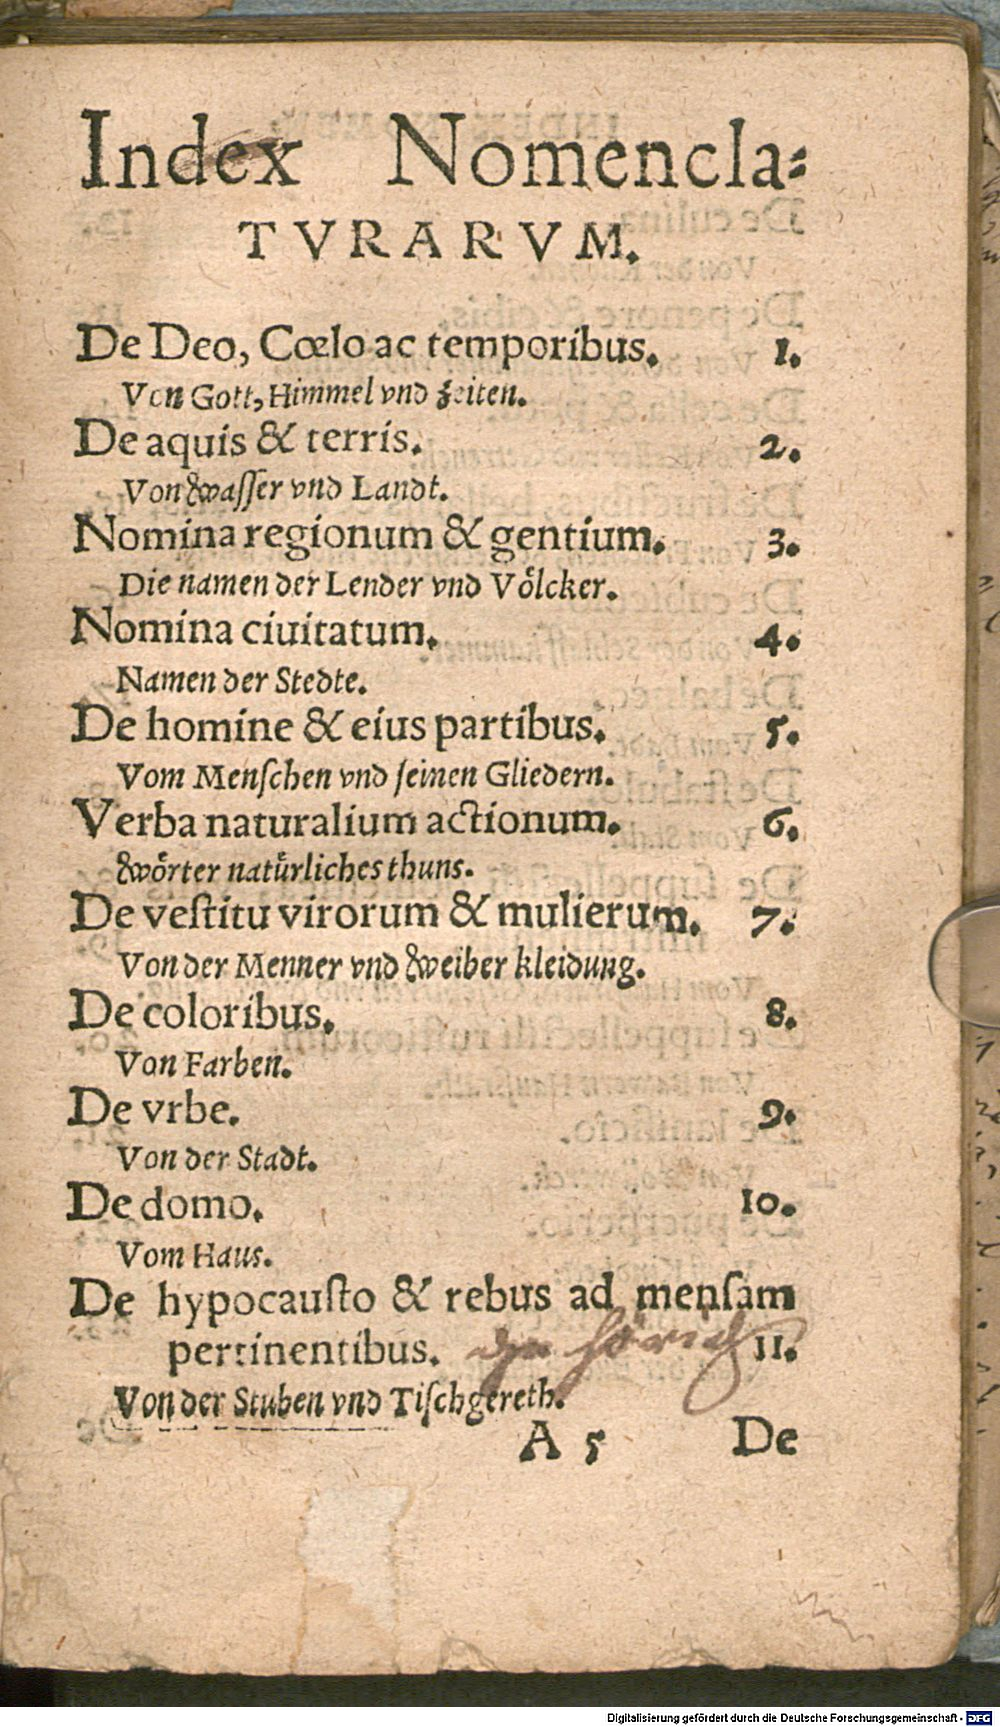 Index Nomencla⸗
TVRARVM.
De Deo, Cœlo ac temporibus. 1.
Von Gott, Himmel vnd Zeiten.
De aquis & terris. 2.
Von Wasser vnd Landt.
Nomina regionum & gentium. 3.
Die namen der Lender vnd Vőlcker.
Nomina ciuitatum. 4.
Namen der Stedte.
De homine & eius partibus. 5.
Vom Menſchen vnd ſeinen Gliedern.
Verba naturalium actionum. 6.
Wőrter natürliches thuns.
De veſtitu virorum & mulierum. 7.
Von der Menner vnd Weiber kleidung.
De coloribus. 8.
Von Farben.
De vrbe. 9.
Von der Stadt.
De domo. 10.
Vom Haus.
De hypocauſto & rebus ad menſam
pertinentibus. 11.
Von der Stuben vnd Tiſchgereth.
A 5 De
Digitalisierung gefördert durch die Deutsche Forschungsgemeinschaft - DFG